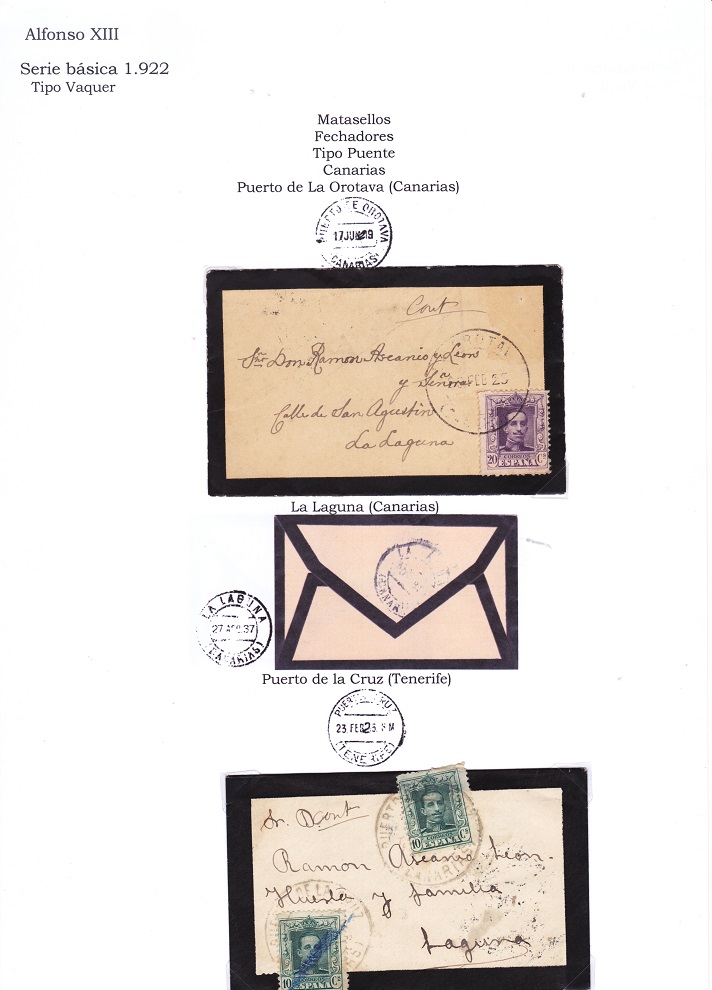 Alfonso XIII
Serie básica 1.922
Tipo Vaquer
Matasellos
Fechadores
Tipo Puente
Canarias
Puerto de La Orotava (Canarias)
PUERTO DE OROTAVA
17 JUN 29
(CANARIAS)
Cont
Sñr Don Ramon Ascanio y Leon
y Señora
Calle de San Agustin
La Laguna
FEB 25
CORREOS
20 ESPAÑA Cs
La Laguna (Canarias)
LA LAGUNA
27 AGO 37
(CANARIAS)
Puerto de la Cruz (Tenerife)
23 FEB 26
(TENERIFE)
Sr. D
Ramon Ascanio Leon
y familia
Laguna
PUERTO
CANARIAS
CORREOS
10 ESPAÑA Cs
DE LA
CORREOS
10 ESPAÑA Cs